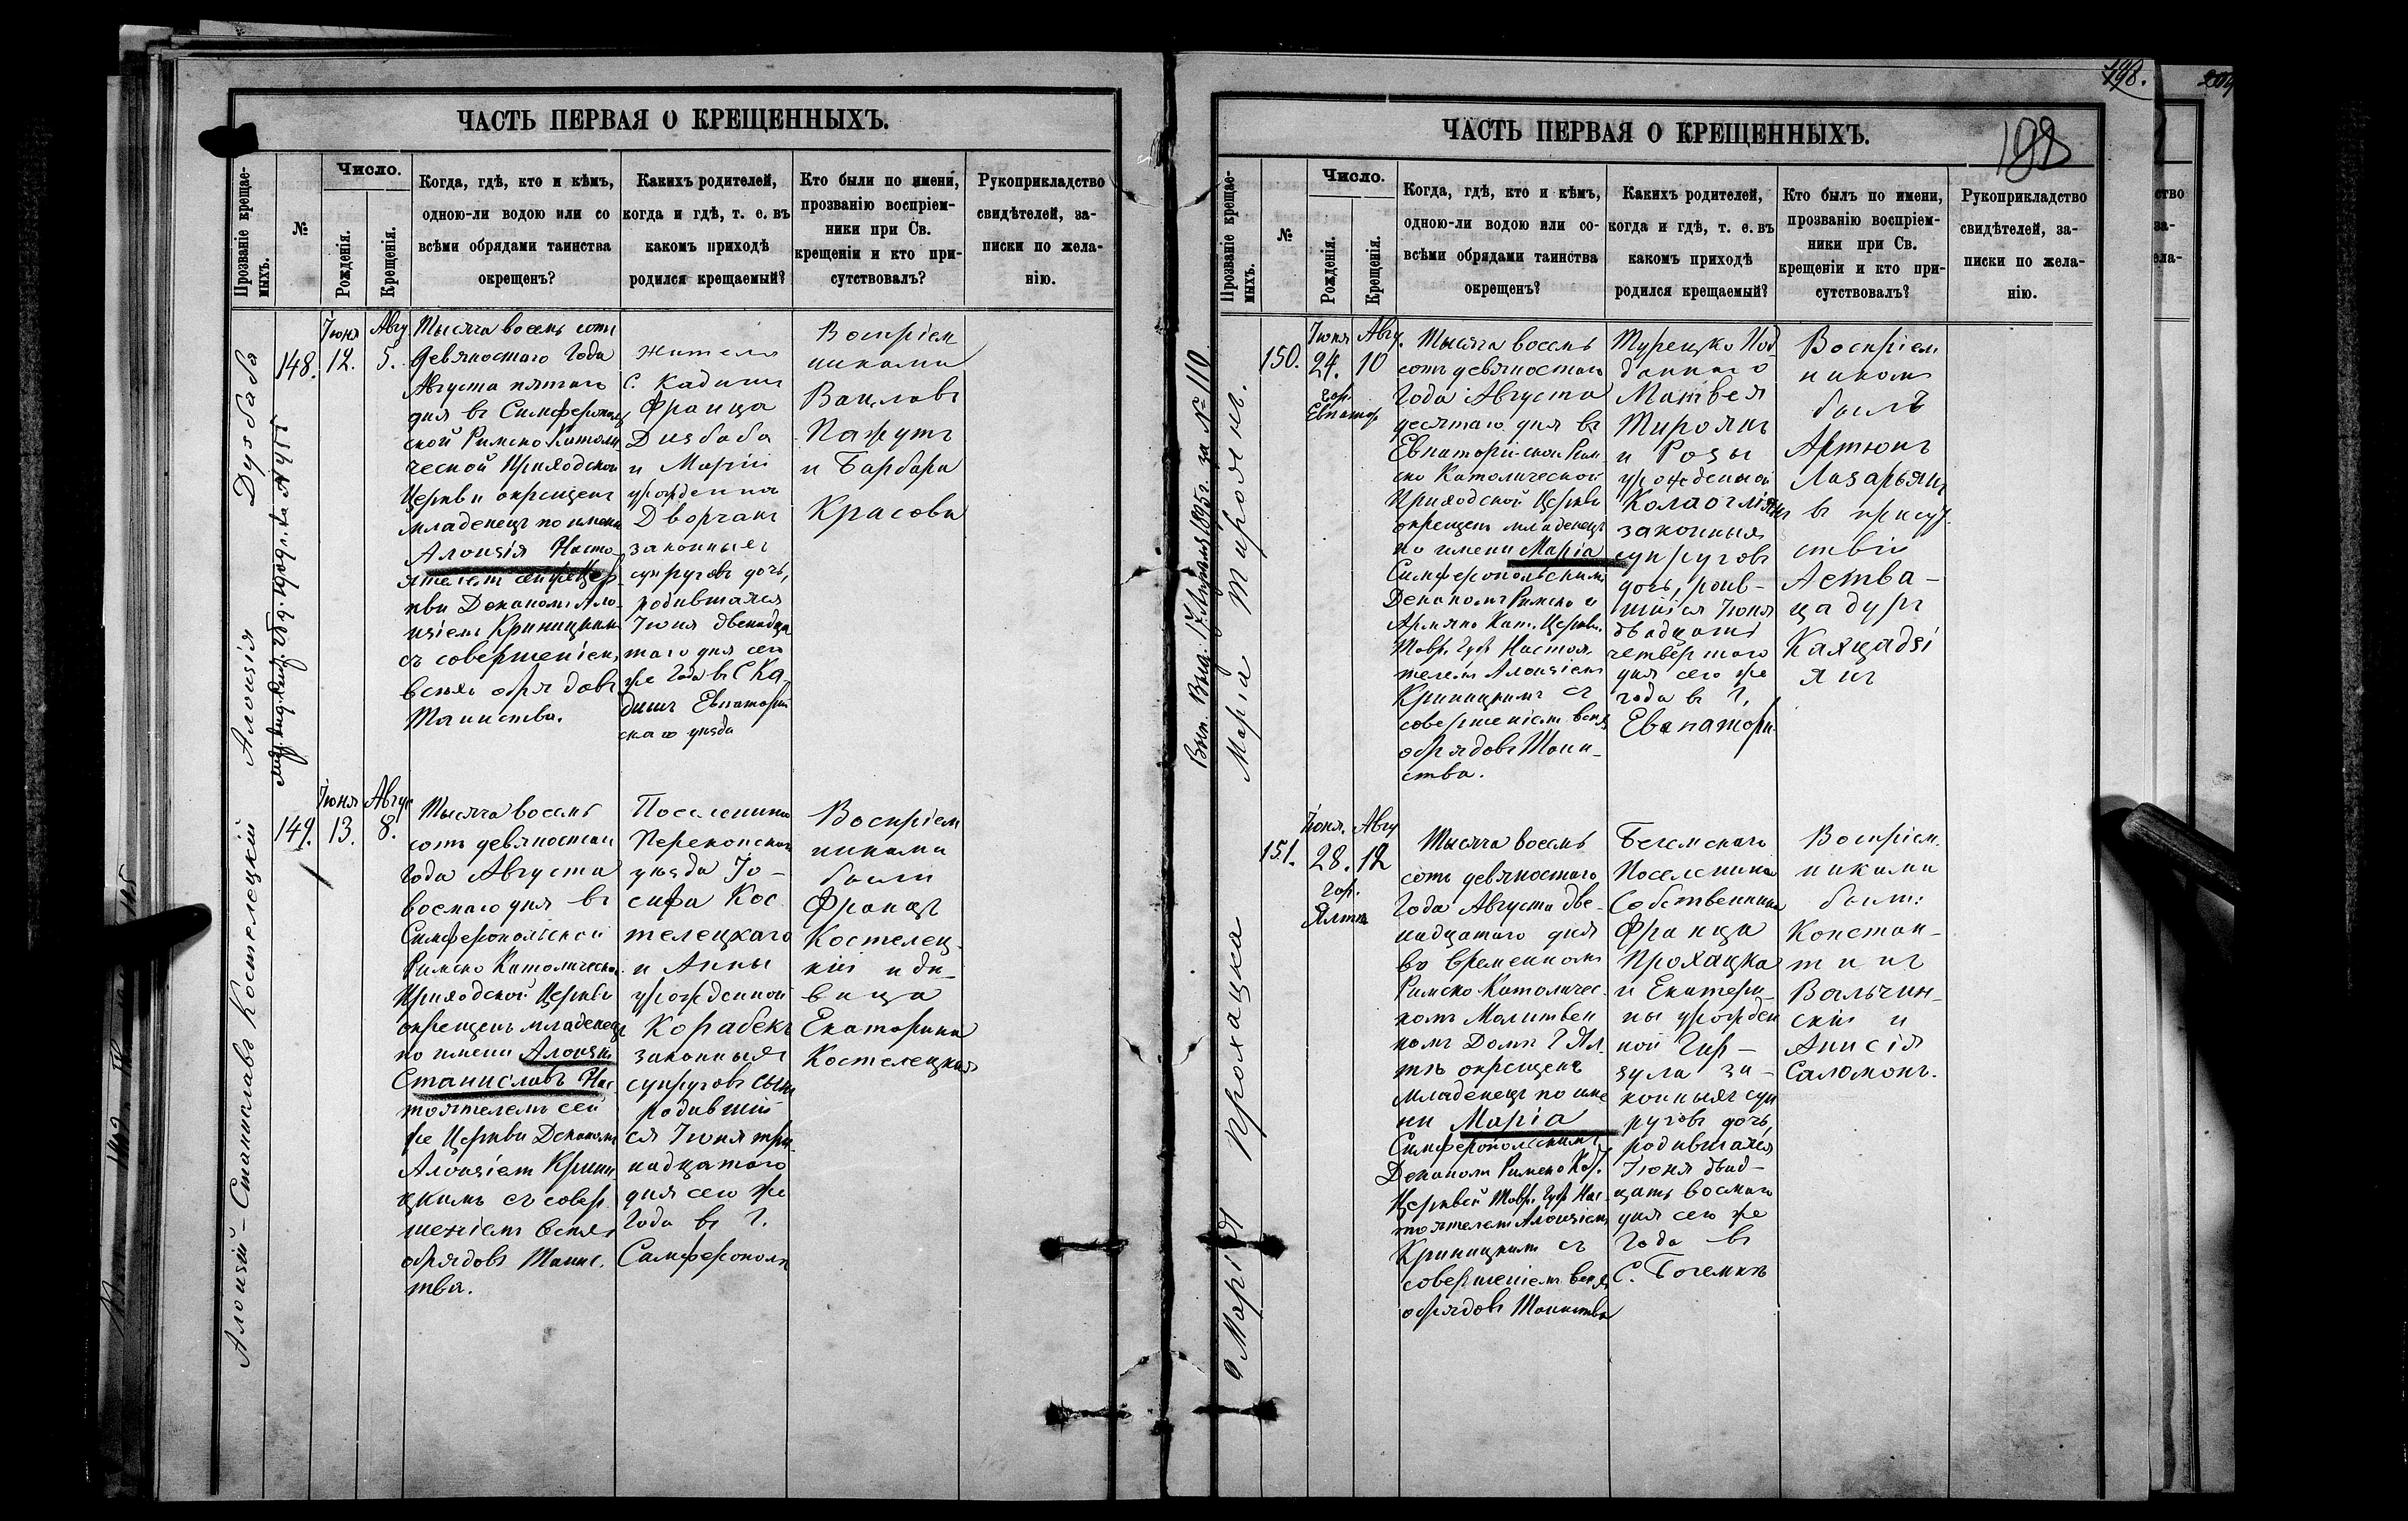 ЧАСТЬ ПЕРВАЯ О КРЕЩЕННЫХЪ.
Прозваніе крещае-
мыхъ.
№
Число.
Рожденія.
Крещенія.
Когда, гдѣ, кто и кѣмъ,
одною-ли водою или со
всѣми обрядами таинства
окрещенъ?
Какихъ родителей,
когда и гдѣ, т. е. въ
какомъ приходѣ
родился крещаемый?
Кто были по имени,
прозванію воспріем-
ники при Св.
крещеніи и кто при-
сутствовалъ?
Рукоприкладство
свидѣтелей, за-
писки по жела-
нію.
Алоизія Дузбаба
148.
Іюня
12.
Авгу.
5.
Тысяча восемь сотъ
девяностаго Года
Августа пятаго
дня въ Симферополь
ской Римско Католи
ческой Приходской
Церкви окрещенъ
младенецъ по имени
Алоизія Насто-
ятелемъ сей же Цер
кви Деканомъ Ало-
изіемъ Криницкимъ
съ совершеніемъ
всѣхъ обрядовъ
Таинства.
жители
С. Кадышъ
Франца
Дузбаба
и Маріи
урожденная
Дворчакъ
законныхъ
супруговъ дочь,
родившаяся
Іюня двенадца
таго дня сего
же Года въ С Ка
дышъ Евпаторій
скаго уѣзда
Воспріем
никами
Вацлавъ
Пажутъ
и Барбара
Красова
Алоизій-Станиславъ Костелецкій
149.
Іюня
13.
Авгус
8.
Тысяча восемь
сотъ девяностаго
Года Августа
восмаго дня въ
Симферопольской
Римско Католической
Приходской Церкви
окрещенъ младенецъ
по имени Алоизій
Станиславъ Нас
тоятелемъ сей
же Церкви Деканомъ
Алоизіемъ Крини
цкимъ съ совер
шеніемъ всѣхъ
обрядовъ Таинс.
тва.
Поселенина
Перекопскаго
уѣзда Іо-
сифа Кос
телецкаго
и Анны
урожденной
Корабекъ
законныхъ
супруговъ сынъ
родившій
ся Іюня три
надцатаго
дня сего же
Года въ Г.
Симферополѣ
Воспріем
никами
были
Францъ
Костелец-
кій и дѣ-
вица
Екатерина
Костелецкая
198.
198
ЧАСТЬ ПЕРВАЯ О КРЕЩЕННЫХЪ.
Прозваніе крещае-
мыхъ.
№
Число.
Рожденія.
Крещенія.
Когда, гдѣ, кто и кѣмъ,
одною-ли водою или со-
всѣми обрядами таинства
окрещенъ?
Какихъ родителей,
когда и гдѣ, т. е. въ
какомъ приходѣ
родился крещаемый?
Кто былъ по имени,
прозванію воспріем-
ники при Св.
крещеніи и кто при-
сутствовалъ?
Рукоприкладство
свидѣтелей, за-
писки по жела-
нію.
1895г. за № 110
Марія Тироянъ.
150.
Іюня
24.
гор.
Евпатор
Авгу.
10
Тысяча восемь
сотъ девяностаго
Года Августа
десятаго дня въ
Евпаторійской Рим
ско Католической
Приходской Церкви
окрещенъ младенецъ
по имени Марія
Симферопольскимъ
Деканомъ Римско и
Армяно Кат. Церкви.
Тавр. Губ Настоя
телемъ Алоизіемъ
Криницкимъ съ
совершеніемъ всѣхъ
обрядовъ Таин-
ства.
Турецко Под
даннаго
Матвея
Тироянъ
и Розы
урожденной
законныхъ
супруговъ
дочь, роив-
шійся Іюня
двадцать
четвертаго
дня сего же
года въ Г.
Евпаторіи
Воспріем
никомъ
былъ
Артюнъ
Лазарьянъ
въ присут
ствіи
Аства-
цадуръ
Каяцадзі
янъ
Марія Прохацка
151.
Іюня.
28.
гор.
Ялта
Авгу
12
Тысяча восемь
сотъ девяностаго
Года Августа две-
надцатаго дня
во временномъ
Римско Католичес.
комъ Молитвен
номъ Домѣ Г Ял.
тѣ окрещенъ
Младенецъ по име
ни Марія
Симферопольскимъ
Деканомъ Римско Кат.
Церквей Тавр. Губ Нас
тоятелемъ Алоизіемъ
Криницкимъ съ
совершеніемъ всѣхъ
обрядовъ Таинства
Богемскаго
Поселенина
Собственника
Франца
Прохацка
и Екатери
ны урожден
ной Гир-
зула за-
конныхъ суп
руговъ дочь,
родившаяся
Іюня двад-
цать восмаго
дня сего же
Года въ
С. Богемкѣ
Воспріем.
никами
были:
Констан-
тинъ
Вальчин-
скій и
Анисія
Саломонъ.